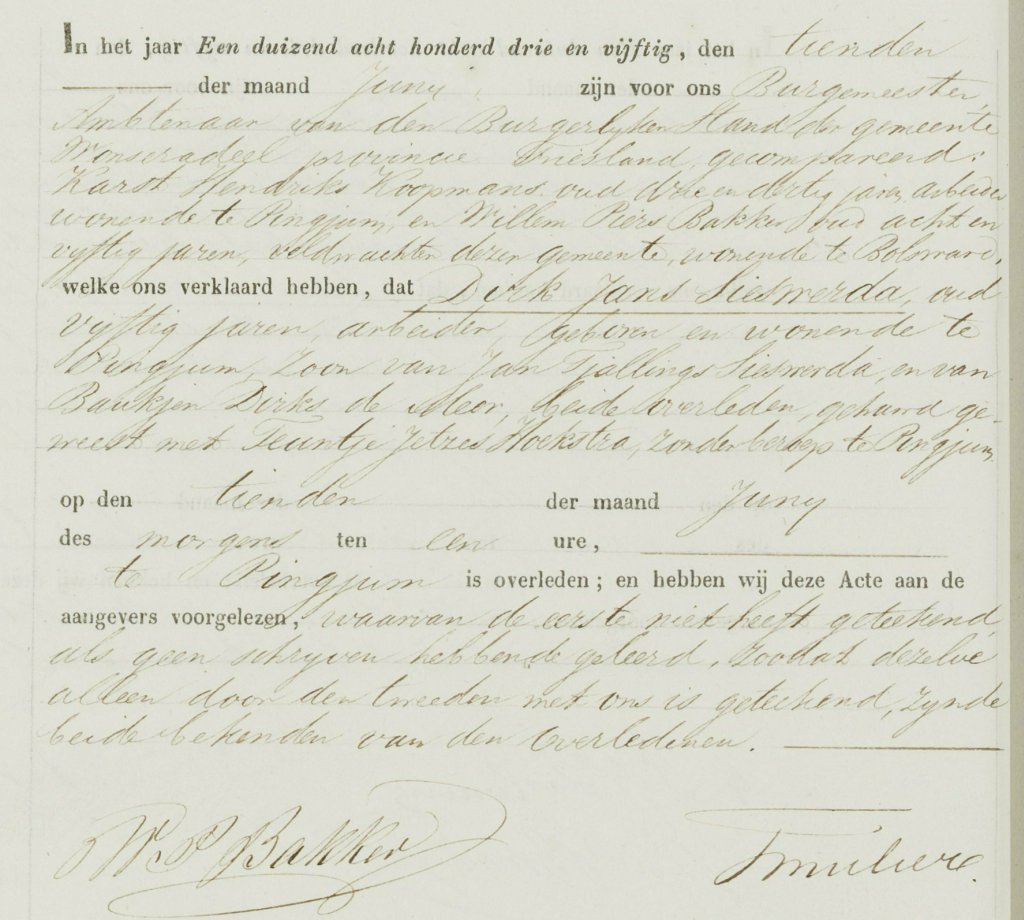 In het jaar Een duizend acht honderd drie en vijftig, den tienden
der maand Juny zijn voor ons Burgemeester,
Ambtenaar van den Burgerlyken Stand der gemeente
Wonseradeel provincie Friesland, gecompareerd:
Karst Hendriks Koopmans oud drie en dertig jaren, arbeider
wonende te Pingjum, en Willem Piers Bakker, oud acht en
vyftig jaren, veldwachter dezer gemeente, wonende te Bolsward,
welke ons verklaard hebben, dat Dirk Jans Sieswerda, oud
vyftig jaren, arbeider, geboren en wonende te
Pingjum, zoon van Jan Tjallings Sieswerda, en van
Baukjen Dirks de Meer, beide overleden, gehuwd ge-
weest met Teuntje Jetzes Hoekstra, zonder beroep te Pingjum,
op den tienden der maand Juny
des morgens ten een ure,
te Pingjum is overleden; en hebben wij deze Acte aan de
aangevers voorgelezen, waarvan de eerste niet heeft geteekend,
als geen schryven hebbende geleerd, zoodat dezelve
alleen door den tweeden met ons is geteekend, zynde
beide bekenden van den overledenen.
W. P. Bakker